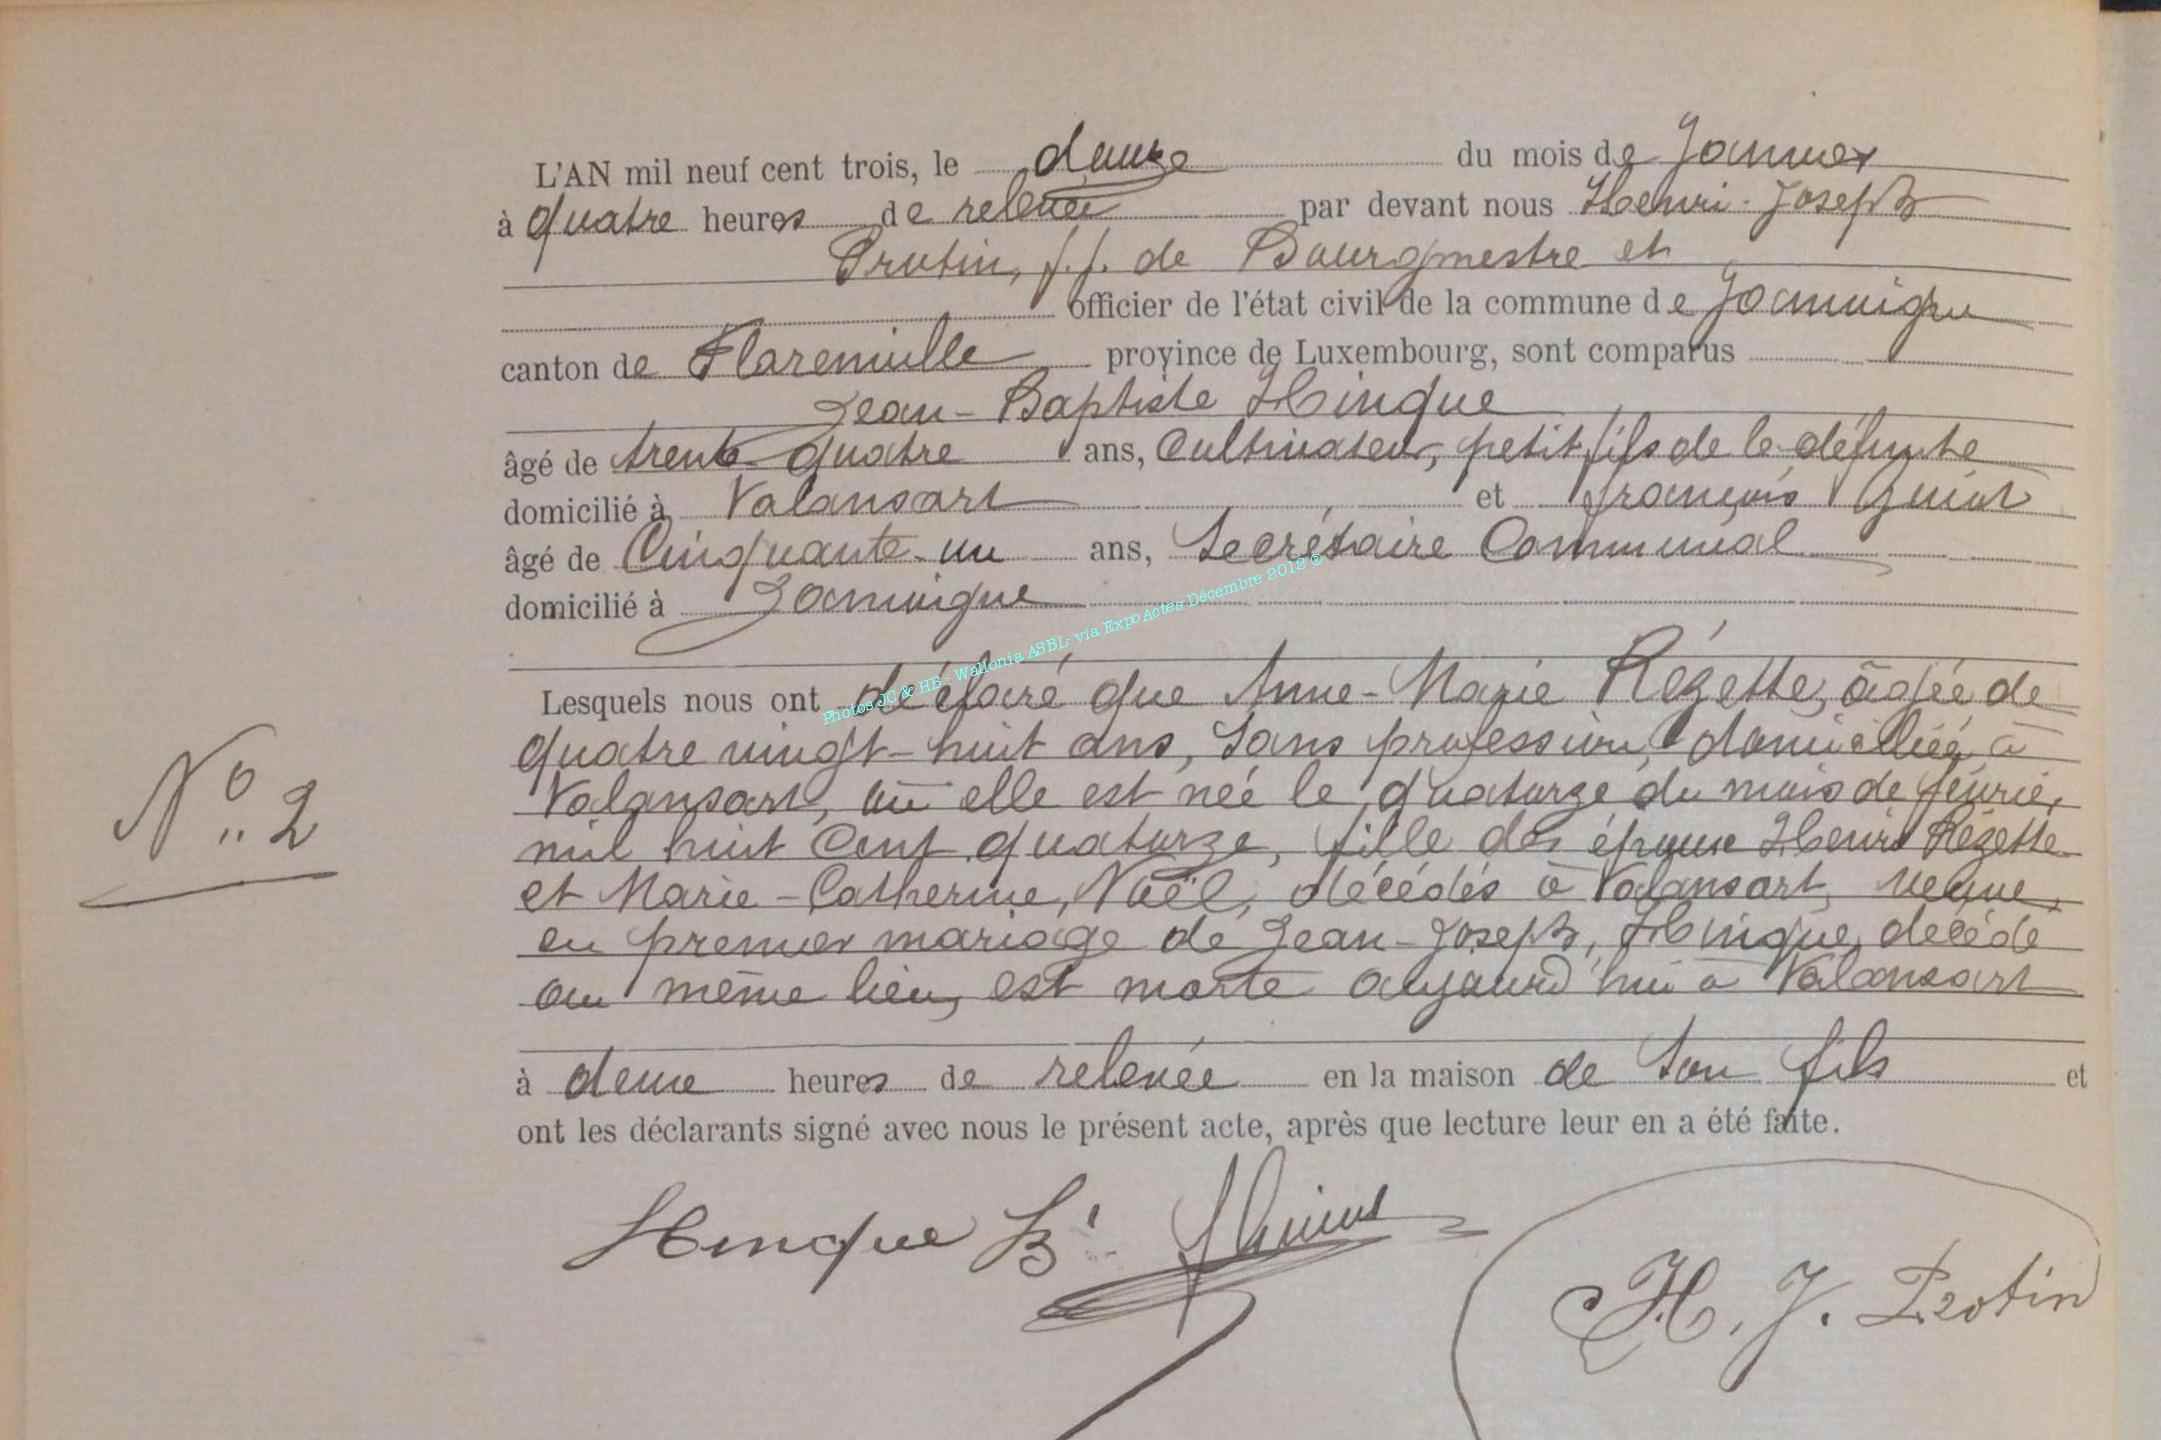 L'AN mil neuf cent trois, le douze du mois de Janvier
à quatre heures de relevée par devant nous Henri-Joseph
Protin, f.f. de Bourgmestre et
officier de l'état civil de la commune de Jamoigne
canton de Florenville province de Luxembourg, sont comparus
Jean-Baptiste Hinque
âgé de trente-quatre ans, Cultivateur, petit fils de la défunte
domicilié à Valansart et François
âgé de Cinquante-un ans, Secrétaire Communal
domicilié à Jamoigne
Photos JC & HB - Wallonia ASBL- via Expo Actes Décembre 2012 ©
Lesquels nous ont déclaré que Anne-Marie Rézette, âgée de
N° 2
quatre vingt-huit ans, Sans profession, domiciliée à
Valansart, où elle est née le quatorze du mois de février
mil huit Cent quatorze, fille des époux Henri Rézette
et Marie-Catherine, Noël, décédés à Valansart, veuve,
en premier mariage de Jean-Joseph, Hinque, décédé
au même lieu, est morte aujourd'hui à Valansart
à deux heures de relevée en la maison de Son fils et
ont les déclarants signé avec nous le présent acte, après que lecture leur en a été faite.
Hinque Bt H. J. Protin